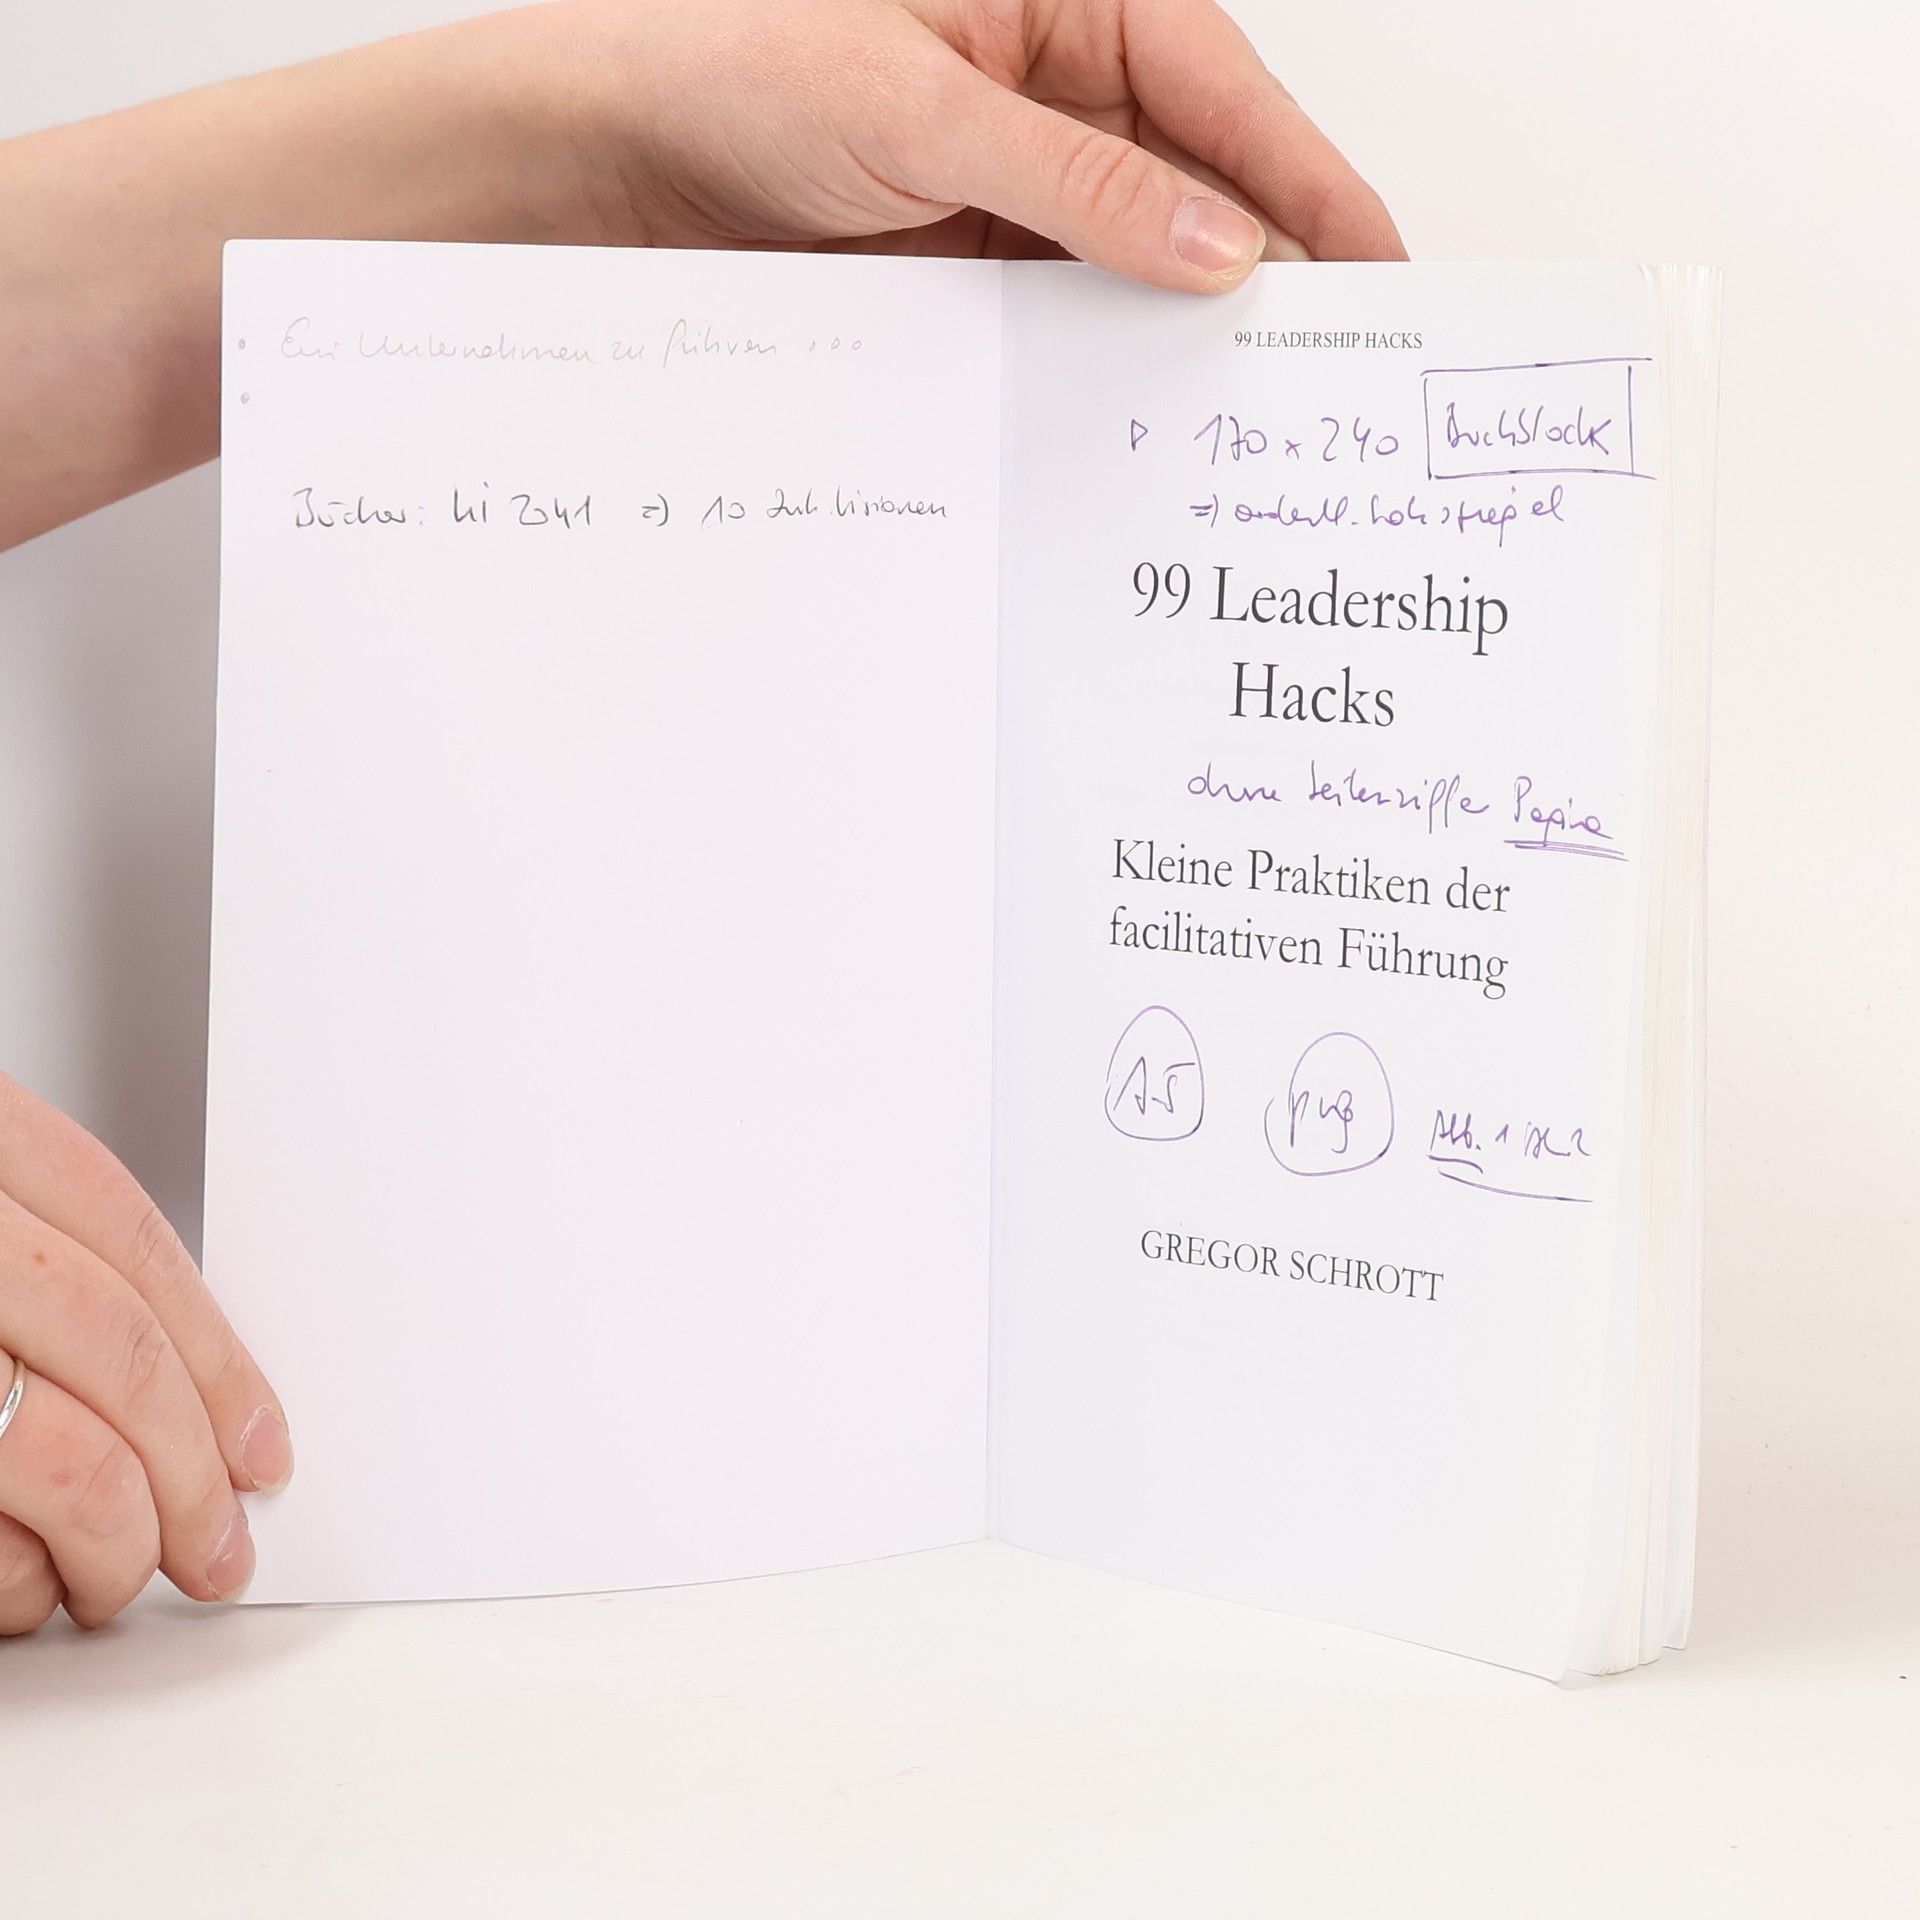 Ein Unternehmen zu führen ...
Bücher: ki 2041 => 10 Zuk.visionen
99 LEADERSHIP HACKS
170 x 240 Buchblock
=>
99 Leadership
Hacks
ohne Seitenziffer
Kleine Praktiken der
facilitativen Führung
A5 png Abb. 1
GREGOR SCHROTT